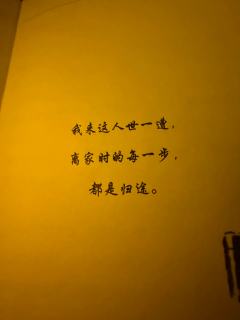 我来这人世一遭，
离家时的每一步，
都是归途。